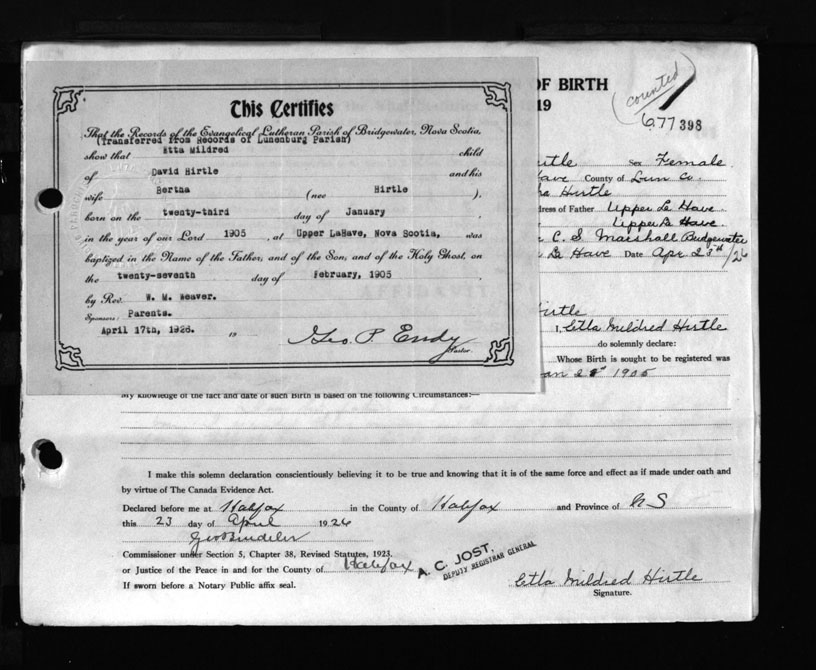 This Certifies
That the Records of the Evangelical Lutheran Parish of Bridgewater, Nova Scotia,
(Transferred from Records of Lunenburg Parish)
show that Etta Mildred child
of David Hirtle and his
wife Bertha (nee Hirtle ),
born on the twenty-third day of January ,
in the year of our Lord 1905 , at Upper LaHave, Nova Scotia, was
baptized in the Name of the Father, and of the Son, and of the Holy Ghost, on
the twenty-seventh day of february, 1905
by Rev. W. M. Weaver.
Sponsors: Parents.
April 17th, 1926. 19
Geo. P. Endy
Pastor.
OF BIRTH
19
(counted)
677398
Sex Female
County of Lun Co
Hirtle
dress of Father Upper La Have
Upper La Have
C. S. Marshall Bridgewater
La Have Date Apr 23rd/26
I, Etta Mildred Hirtle
do solemnly declare:
Whose Birth is sought to be registered was
1905
My knowledge of the fact and date of such Birth is based on the following Circumstances:—
I make this solemn declaration conscientiously believing it to be true and knowing that it is of the same force and effect as if made under oath and
by virtue of The Canada Evidence Act.
Declared before me at Halifax in the County of Halifax and Province of N S
this 23 day of April 1926
Commissioner under Section 5, Chapter 38, Revised Statutes, 1923.
or Justice of the Peace in and for the County of Halifax
A. C. JOST,
DEPUTY REGISTRAR GENERAL
If sworn before a Notary Public affix seal.
Etta Mildred Hirtle
Signature.